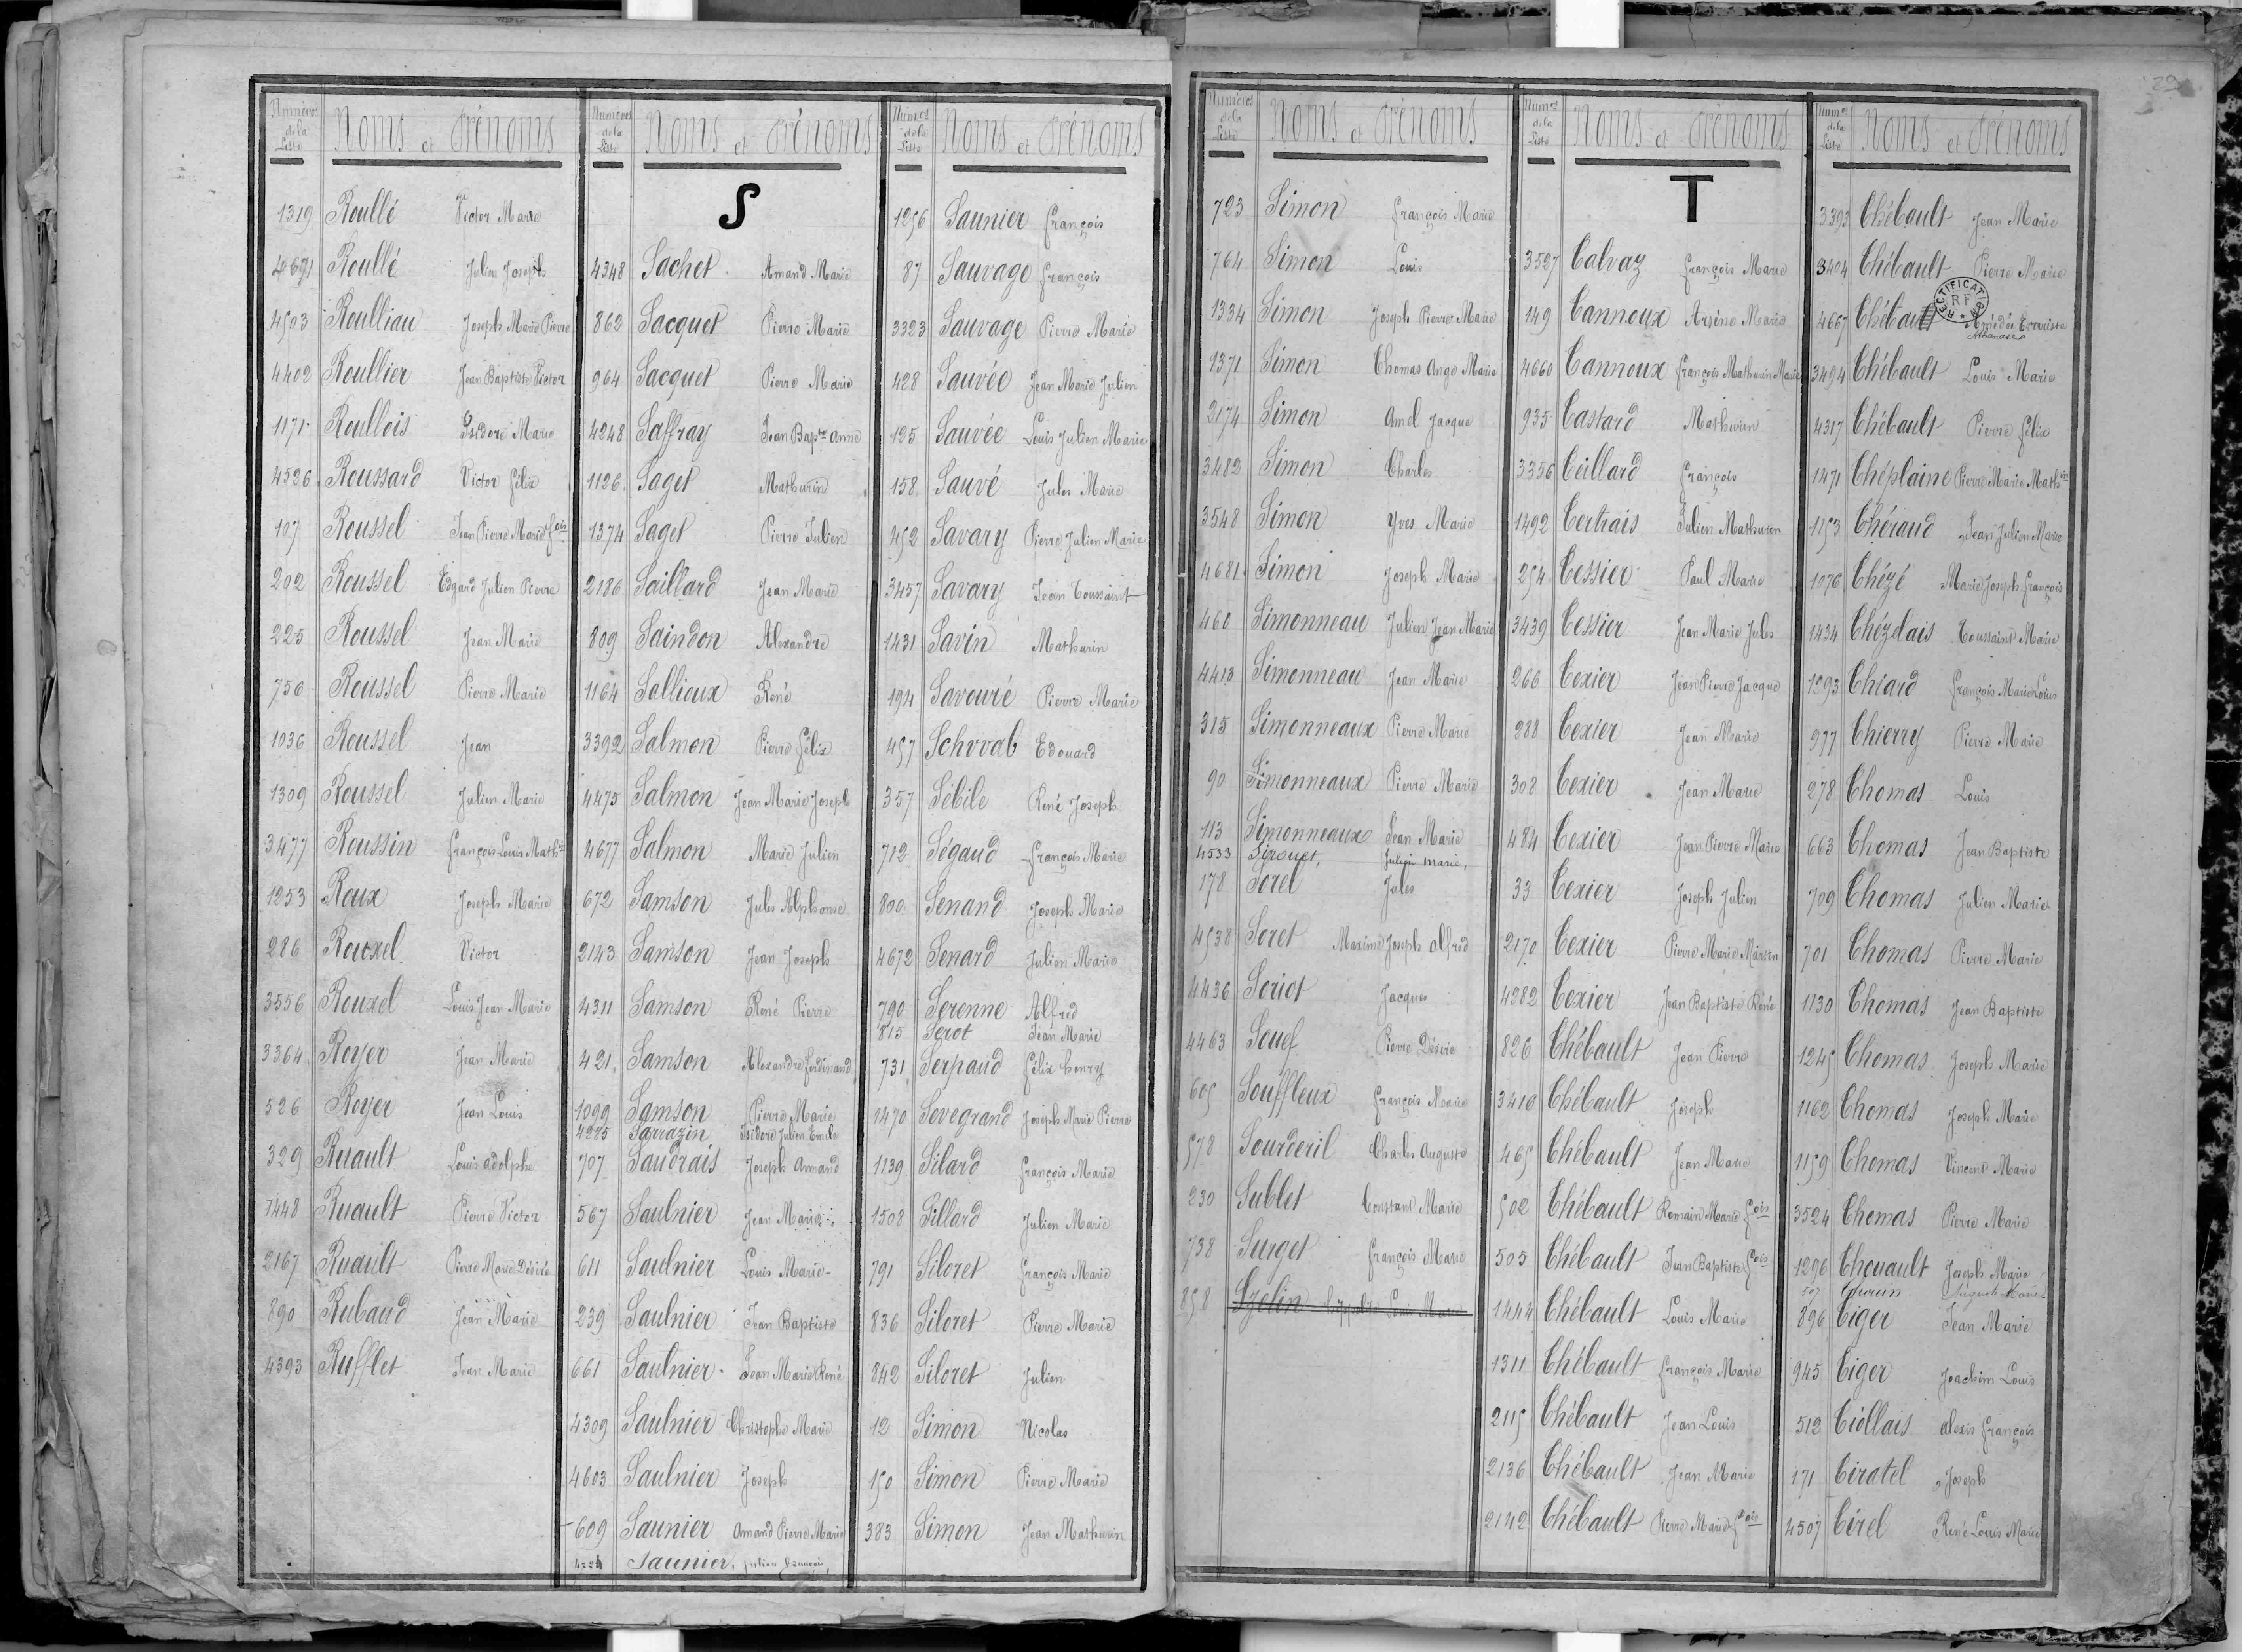 Numéros de la Liste Noms et Prénoms
1319 Roullé Victor Marie
Roullé Julien Joseph
4503 Roulliau Joseph Marie Pierre
4402 Roullier Jean Baptiste Victor
1171 Roullois Isidore Marie
4526 Roussard Victor Félix
107 Roussel Jean Pierre Marie fois
202 Roussel Edgard Julien Pierre
225 Roussel Jean Marie
756 Roussel Pierre Marie
1036 Roussel Jean
1309 Roussel Julien Marie
3477 Roussin François Louis Mathin
1253 Roux Joseph Marie
286 Rouxel Victor
3556 Rouxel Louis Jean Marie
3364 Royer Jean Marie
526 Royer Jean Louis
329 Ruault Louis adolphe
1448 Ruault Pierre Victor
2167 Ruault Pierre Marie Désiré
890 Rubaud Jean Marie
4393 Rufflet Jean Marie
Numéros de la Liste Noms et Prénoms
S
4348 Sachet Amand Marie
862 Sacquet Pierre Marie
964 Sacquet Pierre Marie
4248 Saffray Jean Bapte Anne
1126 Saget Mathurin
1374 Saget Pierre Julien
2186 Saillard Jean Marie
809 Saindon Alexandre
1164 Sallioux René
3392 Salmon Pierre Félix
4475 Salmon Jean Marie Joseph
4677 Salmon Marie Julien
672 Samson Jules Alphonse
2143 Samson Jean Joseph
4311 Samson René Pierre
421 Samson Alexandre Ferdinand
1099 Samson Pierre Marie
4285 Sarrazin Isidore Julien Emile
707 Saudrais Joseph Amand
567 Saulnier Jean Marie
611 Saulnier Louis Marie
239 Saulnier Jean Baptiste
661 Saulnier Jean Marie René
4309 Saulnier Christophe Marie
4603 Saulnier Joseph
609 Saunier Amand Pierre Marie
Saunier, Julien François,
Numos de la Liste Noms et Prénoms
1256 Saunier François
87 Sauvage François
3323 Sauvage Pierre Marie
428 Sauvée Jean Marie Julien
125 Sauvée Louis Julien Marie
158 Sauvé Jules Marie
452 Savary Pierre Julien Marie
3457 Savary Jean Toussaint
1431 Savin Mathurin
194 Savouré Pierre Marie
457 Schvvab Edouard
357 Sébile René Joseph
712 Ségaud François Marie
800 Senand Joseph Marie
4672 Senard Julien Marie
790 Serenne Alfred
815 Serot Jean Marie
731 Serpaud Félix henry
1470 Sevegrand Joseph Marie Pierre
1139 Silard François Marie
1508 Sillard Julien Marie
791 Siloret François Marie
836 Siloret Pierre Marie
842 Siloret Julien
12 Simon Nicolas
150 Simon Pierre Marie
383 Simon Jean Mathurin
29
Numéros de la Liste Noms et Prénoms
723 Simon François Marie
764 Simon Louis
1334 Simon Joseph Pierre Marie
1371 Simon Thomas Ange Marie
2174 Simon Amel Jacque
3482 Simon Charles
3548 Simon Yves Marie
4681 Simon Joseph Marie
460 Simonneau Julien Jean Marie
4413 Simonneau Jean Marie
315 Simonneaux Pierre Marie
90 Simonneaux Pierre Marie
113 Simonneaux Jean Marie
4533 Sirouet, Julien Marie,
178 Sorel Jules
4538 Soret Maxime Joseph Alfred
4436 Soriot Jacques
4463 Souef Pierre Désiré
605 Souffleux François Marie
578 Sourderil Charles Auguste
230 Sublet Constant Marie
738 Surget François Marie
858 Szelin Hyppolite Louis Marie
Numos de la Liste Noms et Prénoms
T
3527 Talvaz François Marie
149 Tannoux Arsène Marie
4660 Tannoux François Mathurin Marie
935 Tastard Mathurin
3356 Teillard François
1492 Tertrais Julien Mathurin
254 Tessier Paul Marie
3439 Tessier Jean Marie Jules
266 Texier Jean Pierre Jacque
288 Texier Jean Marie
308 Texier Jean Marie
484 Texier Jean Pierre Marie
33 Texier Joseph Julien
2170 Texier Pierre Marie
4282 Texier Jean Baptiste René
826 Thébault Jean Pierre
3410 Thébault Joseph
465 Thébault Jean Marie
502 Thébault Romain Marie fois
505 Thébault Jean Baptiste fois
1444 Thébault Louis Marie
1311 Thébault François Marie
2115 Thébault Jean Louis
2136 Thébault Jean Marie
2142 Thébault Pierre Marie fois
Numos de la Liste Noms et Prénoms
3393 Thébault Jean Marie
3404 Thébault Pierre Marie
RECTIFICATION RF
4667 Thébau Amédée Evariste
Athanase
3494 Thébault Louis Marie
4317 Thébault Pierre Félix
1471 Théplaine Pierre Marie Mathin
1153 Théraud Jean Julien Marie
1076 Thézé Marie Joseph François
1434 Thézelais Toussaint Marie
1293 Thiard François Marie Louis
977 Thierry Pierre Marie
278 Thomas Louis
663 Thomas Jean Baptiste
709 Thomas Julien Marie
701 Thomas Pierre Marie
1130 Thomas Jean Baptiste
1245 Thomas Joseph Marie
1162 Thomas Joseph Marie
1159 Thomas Vincent Marie
3524 Thomas Pierre Marie
1296 Thouault Joseph Marie
507
896 Tiger Jean Marie
945 Tiger Joachim Louis
512 Tiollais Alexis François
171 Tiratel Joseph
4507 Tirel René Louis Marie